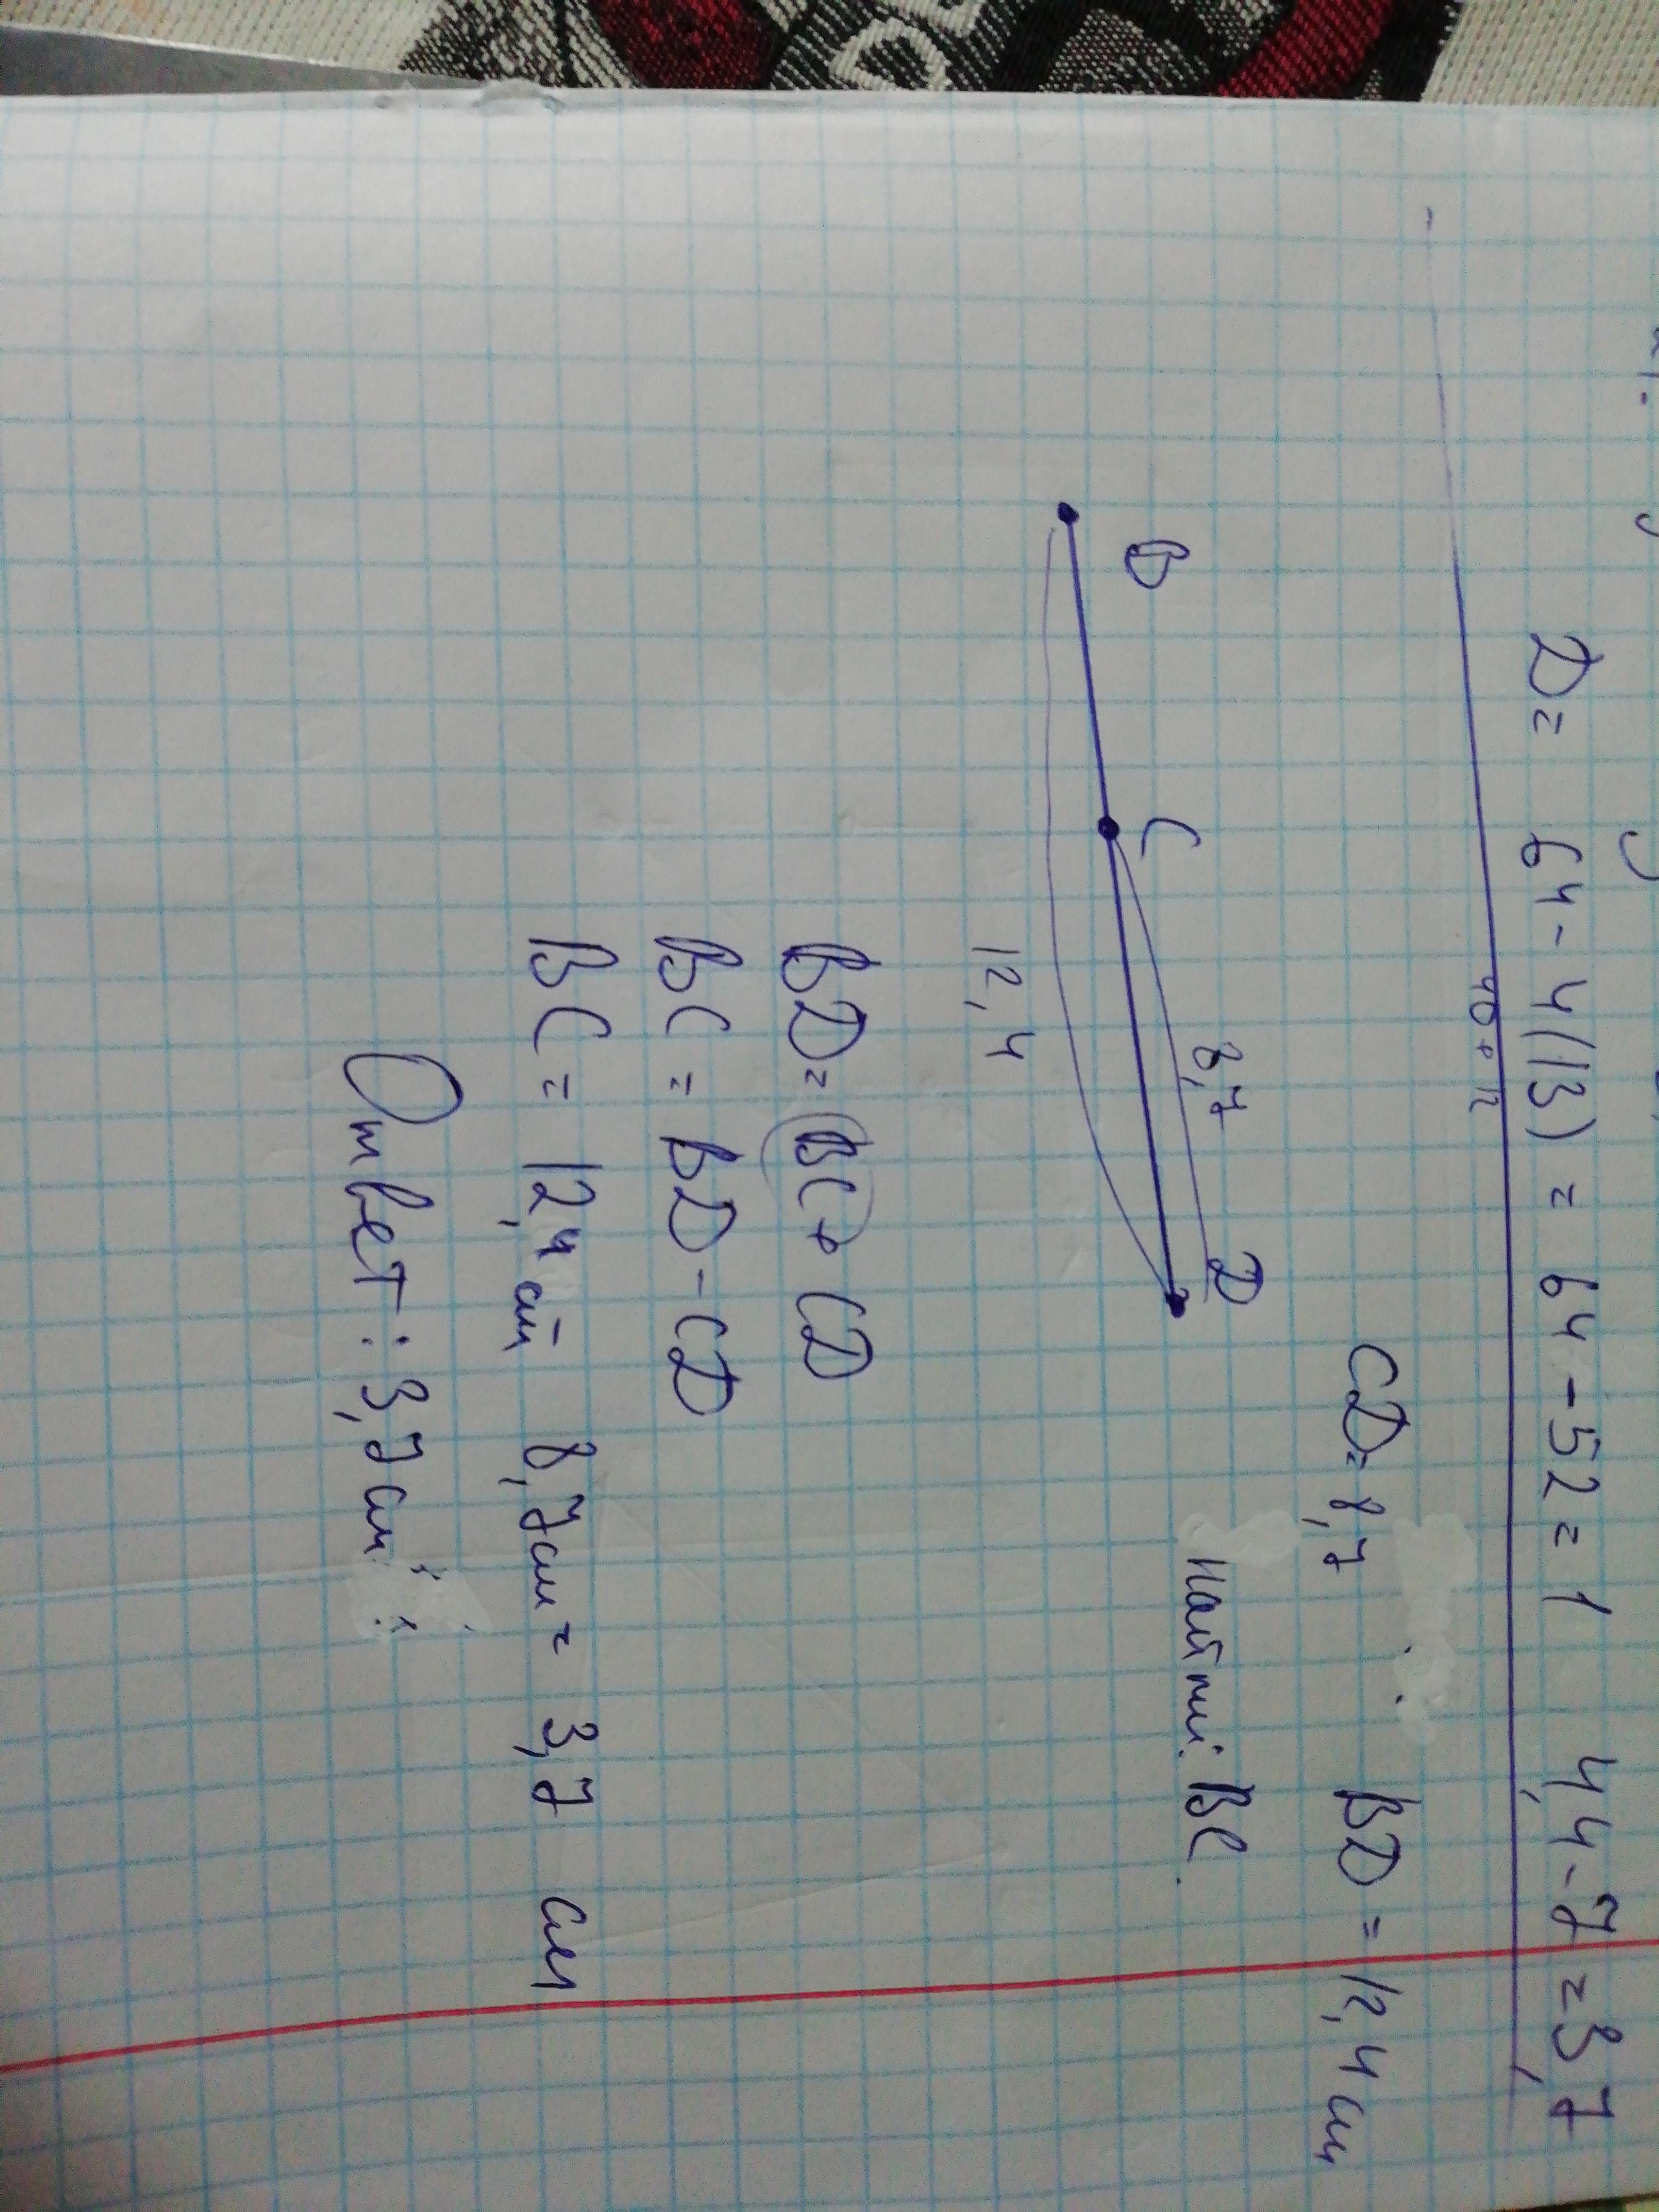 D= 64-4(13) = 64-52=1 4,4-7=3,7
40+12
CD=8,7 BD = 12,4 см
Найти: BC.
B C D
8,7
12,4
BD= BC+CD
BC = BD-CD
BC= 12,4 см 8,7см= 3,7 см
Ответ: 3,7см